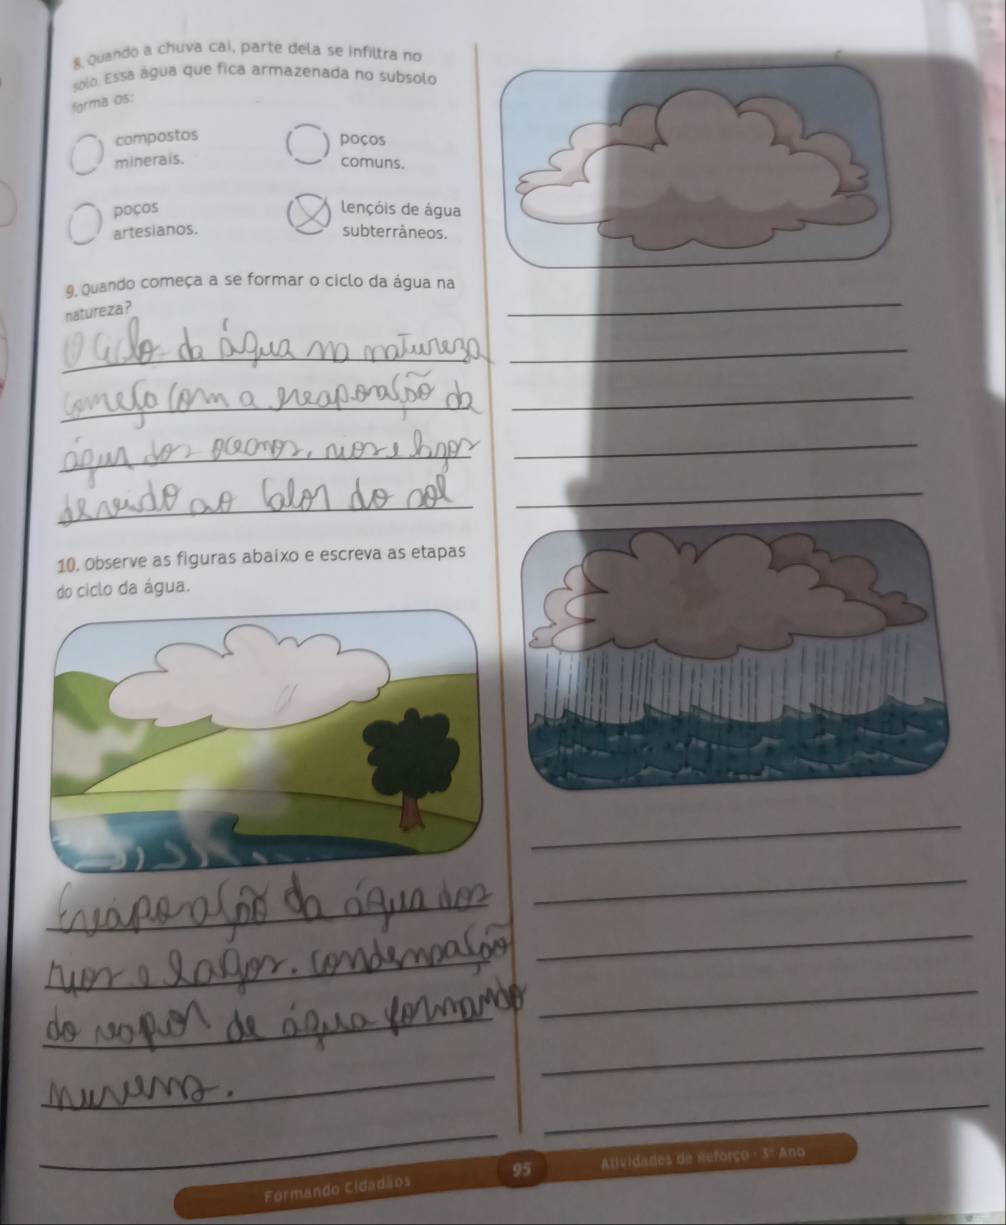 8. Quando a chuva cai, parte dela se infiltra no
solo. Essa água que fica armazenada no subsolo
forma os:
compostos
minerais.
poços
comuns.
poços
artesianos.
lençóis de água
subterrâneos.
9. Quando começa a se formar o ciclo da água na
natureza?
O Ciclo da água na natureza
começa com a evaporação da
água dos oceanos, rios e lagos
devido ao calor do sol
10. Observe as figuras abaixo e escreva as etapas
do ciclo da água.
Evaporação da água dos
rios e lagos. condensação
do vapor de água formando
nuvens.
Formando Cidadãos
95
Atividades de Reforço - 3º Ano